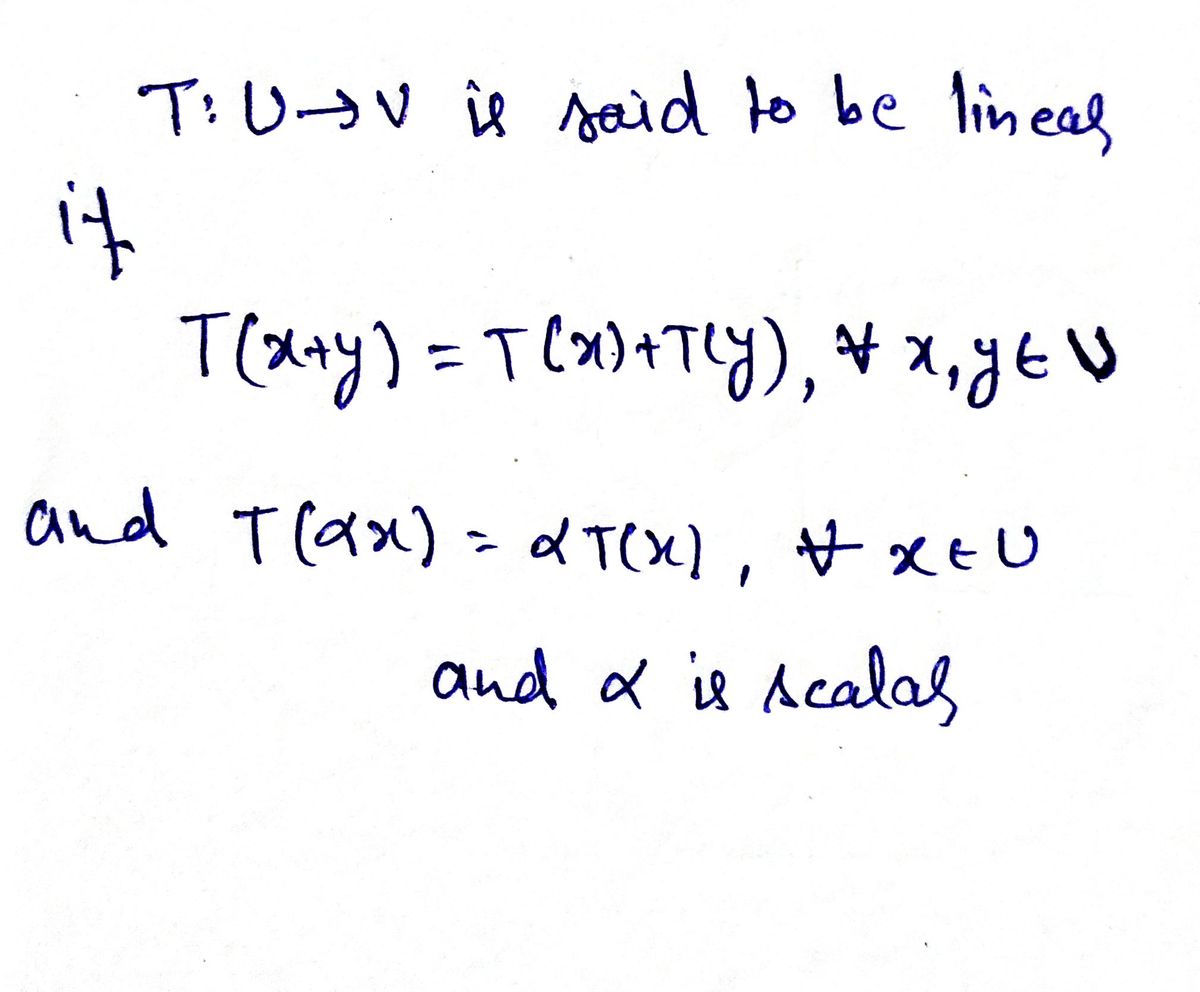 T: U→V is said to be linear
if
T(x+y) = T(x)+T(y), ∀ x,y ∈ U
and T(αx) = αT(x), ∀ x ∈ U
and α is scalar